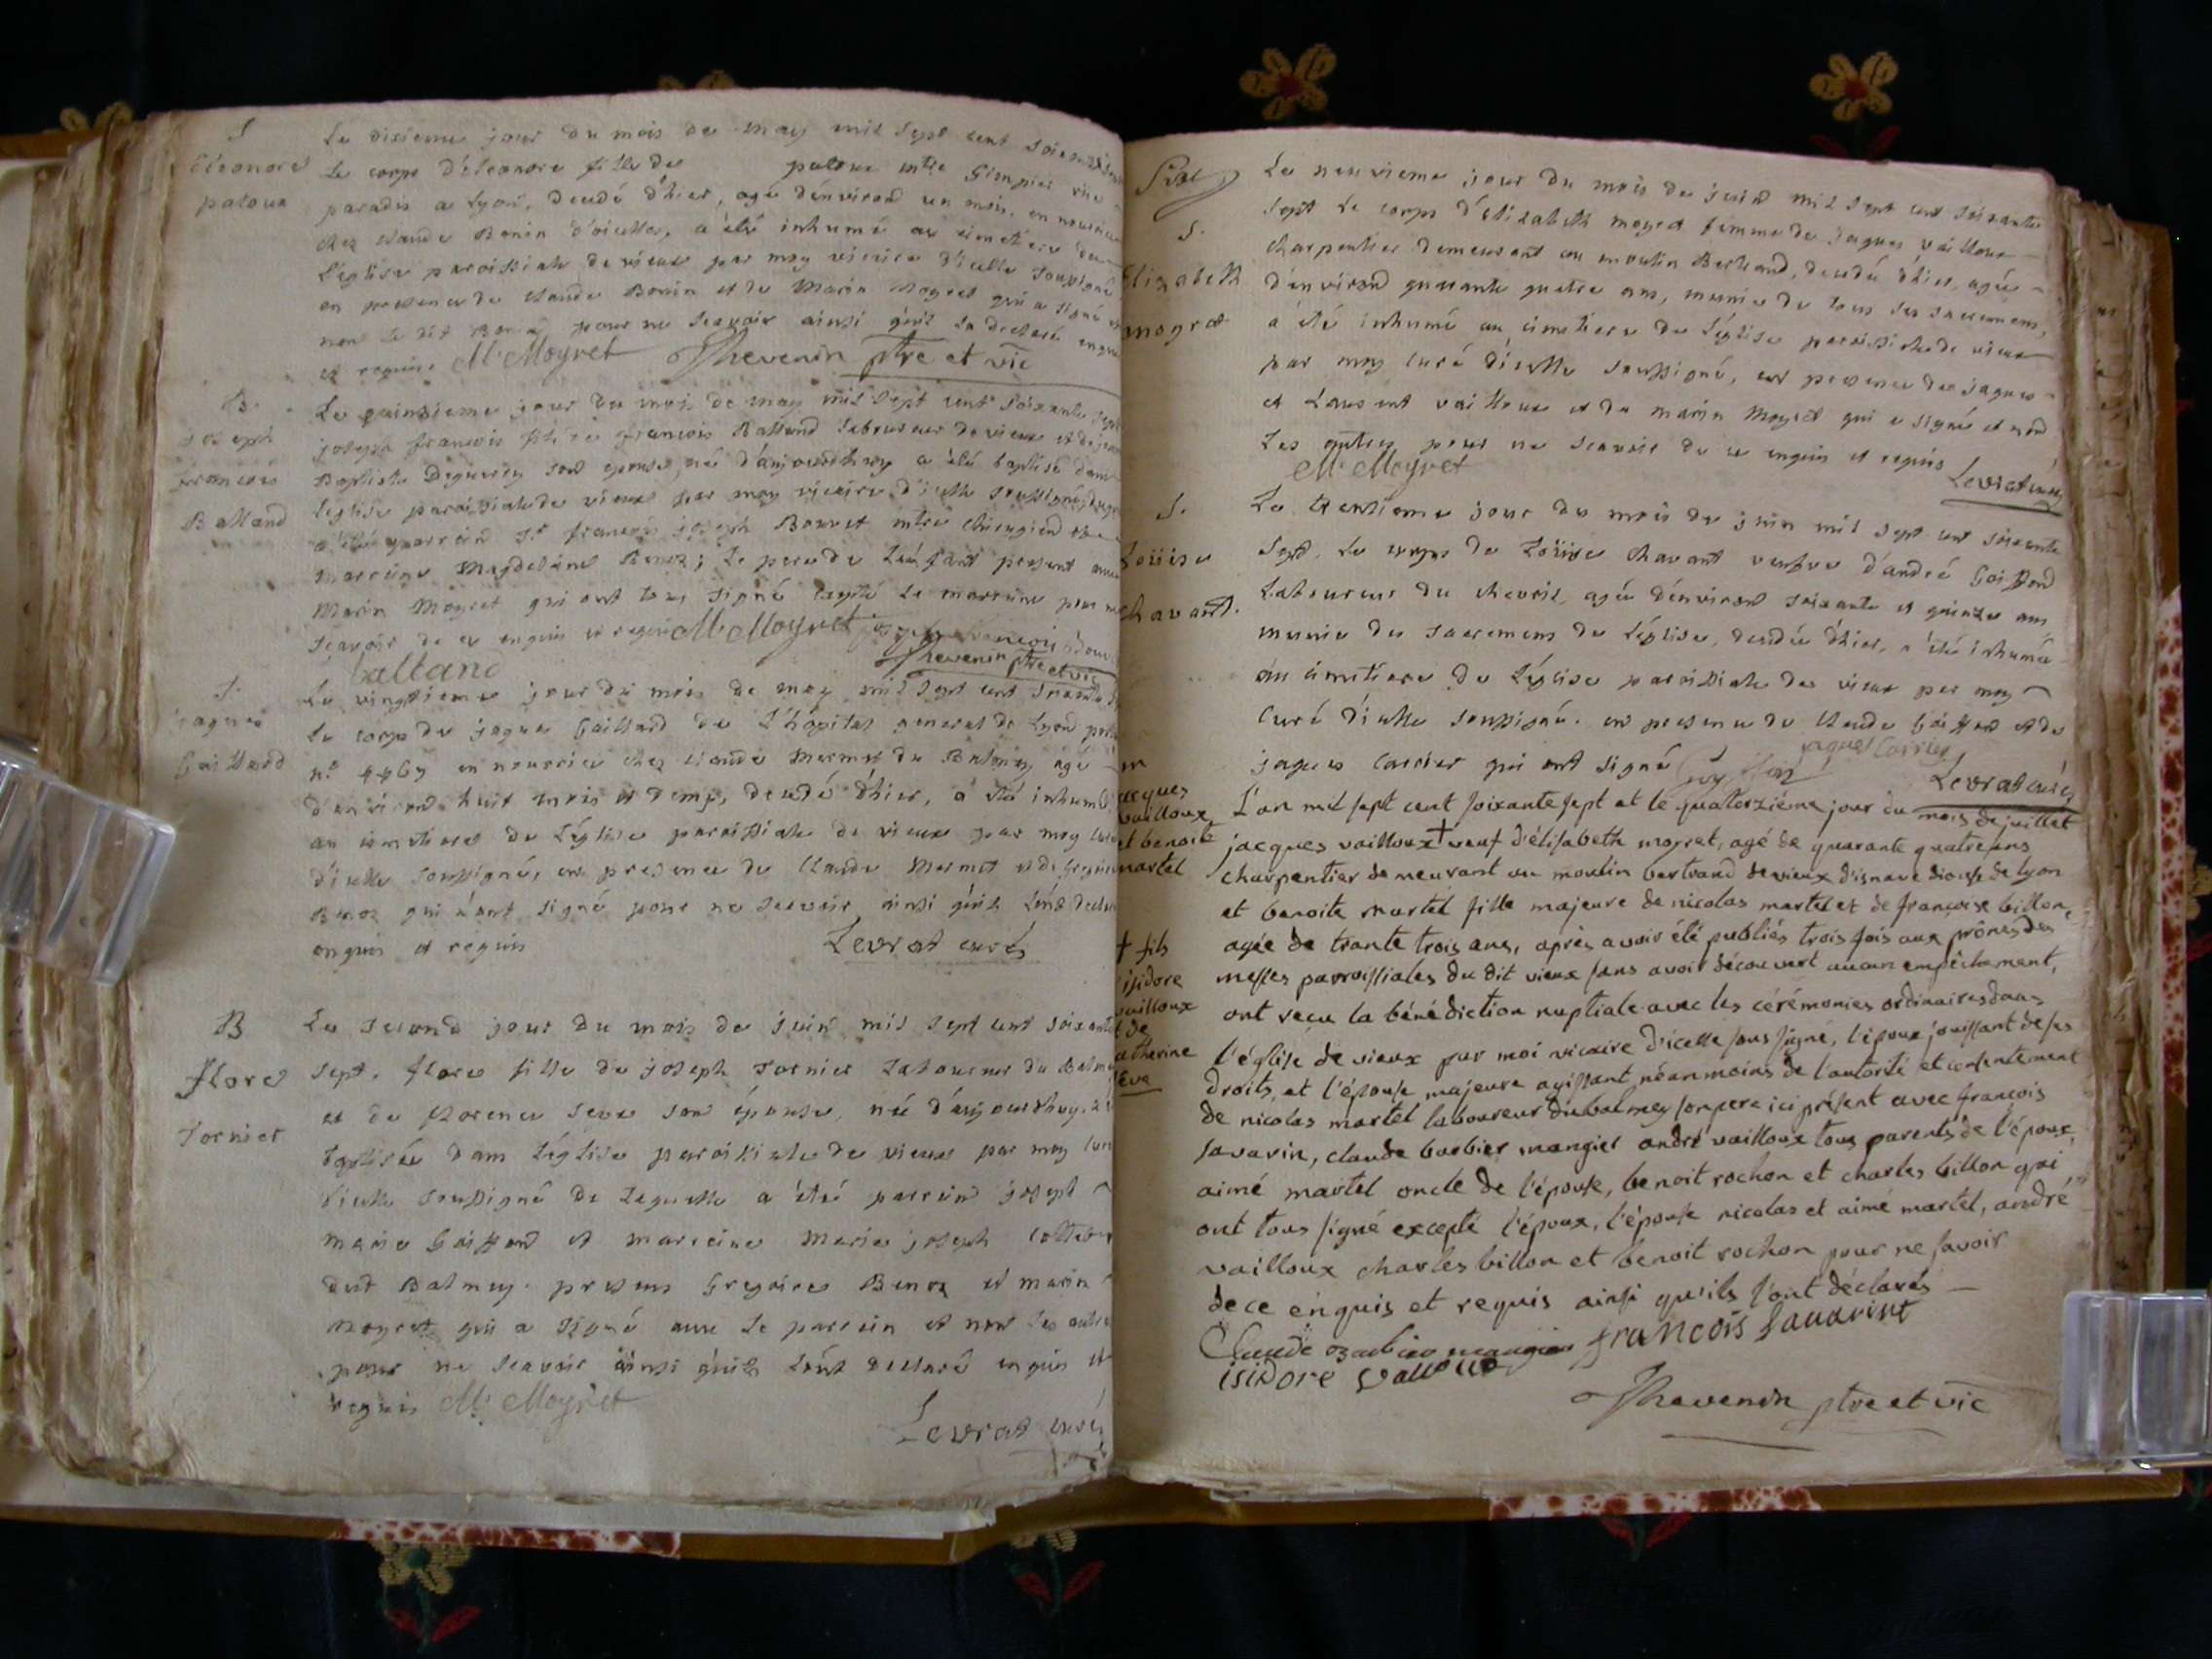 S
Eléonore
patoux
Le dixieme jour du mois de may mil sept cent soixante
Le corps d'éleonore fille de patoux mtre Gimpier rue
paradis a Lyon, decedé d'hier, agé d'environ un mois, en nourrice
chez claude Bonin d'icelle, a été inhumé au cimetiere de
L'église paroissiale de vieux par moy vicaire d'icelle soussigné
en presence de claude Bonin et de Marin Moyret qui a signé et
non Le dit Bonin pour ne scavoir ainsi qu'il La declaré enquis
et requis M. Moyret Thevenin ptre et vic
B.
joseph
francois
Balland
Le quinzieme jour du mois de may mil sept cent soixante sept
joseph francois fils de francois Balland Laboureur de vieux et de jeanne
Baptiste Deguerry son epouse, né d'aujourdhuy a été baptisé dans
L'eglise paroissiale de vieux par moy vicaire d'icelle soussigné, duquel
a été parrain Sr francois joseph Bouvet mtre chirurgien et
marraine Magdelaine Benoz; Le pere de L'enfant present avec
Marin Moyret qui ont tous signé excepté La marraine pour ne
scavoir de ce enquis et requis M. Moyret joseph francois Bouvet
balland Thevenin ptre et vic
S.
jaques
Gaillard
Le vingtieme jour du mois de may mil sept cent soixante
Le corps de jaques Gaillard de L'hôpital general de Lyon
n.o 4467 en nourrice chez claude Mermet du Balmey agé
d'environ huit mois et demy, decedé d'hier, a été inhumé
au cimetiere de L'église paroissiale de vieux par moy curé
d'icelle soussigné, en presence de Claude Mermet et de Gregoire
Benoz qui n'ont signé pour ne scavoir ainsi qu'ils L'ont declaré
enquis et requis Levrat curé
B
flore
Tornier
Le second jour du mois de juin mil sept cent soixante
sept, flore fille de joseph Tornier Laboureur du Balmey
et de florence Seve son épouse, née d'aujourdhuy, a été
baptisée dans L'église paroissiale de vieux par moy curé
d'icelle soussigné de Laquelle a été parrain joseph
marie Goiffon et marreine Marie joseph
dud Balmey. presens Gregoire Benoz et marin
Moyret qui a signé avec Le parrein et non Les autres
pour ne scavoir ainsi qu'ils L'ont declaré enquis et
requis M. Moyret
Levrat curé
S.
Elizabeth
moyret
Le neuvieme jour du mois de juin mil sept cent soixante
sept Le corps d'élizabeth moyret femme de jaques vailloux
charpentier demeurant au moulin Bertrand, decedé d'hier, agée
d'environ quarante quatre ans, munie de tous ses sacremens,
a été inhumé au cimetiere de L'église paroissiale de vieux
par moy curé d'icelle soussigné, en presence de jaques
et Laurent vailloux et de marin Moyret qui a signé et non
Les autres pour ne scavoir de ce enquis et requis
M. Moyret Levrat curé
S.
Loüise
chavant.
Le trentieme jour du mois de juin mil sept cent soixante
sept. Le corps de Loüise chavant veufve d'andré Goiffond
Laboureur du chevril, agée d'environ soixante et quinze ans
munie des sacremens de L'église, decedée d'hier, a été inhumé
au cimetiere de L'église paroissiale de vieux par moy
curé d'icelle soussigné. en presence de Claude Goiffon et de
jaques Carrier qui ont signé goiffon jaques Carrier
Levrat curé
m
jacques
vailloux
et benoite
martel
L'an mil sept cent soixante sept et le quatorziéme jour du mois de juillet
jacques vailloux † veuf d'élisabeth moyret, agé de quarante quatre ans
charpentier demeurant au moulin bertrand de vieux d'isnave diocese de lyon
et benoite martel fille majeure de nicolas martel et de françoise billon,
agée de trante trois ans, après avoir été publiés trois fois aux prônes des
messes parroissiales du dit vieux sans avoir découvert aucun empêchement,
ont reçu la bénédiction nuptiale avec les cérémonies ordinaires dans
l'église de vieux par moi vicaire d'icelle sous signé, l'époux jouissant de ses
droits, et l'épouse majeure agissant néanmoins de l'autorité et consentement
de nicolas martel laboureur du balmey son pere ici présent avec françois
savarin, claude barbier mangier andré vailloux tous parents de l'époux,
aimé martel oncle de l'épouse, benoit rochon et charles billon qui
ont tous signé excepté l'époux, l'épouse nicolas et aimé martel, andré
vailloux charles billon et benoit rochon pour ne savoir
de ce enquis et requis ainsi qu'ils l'ont déclarés
† fils
d'isidore
vailloux
et de
catherine
séve
Claude barbier mangier francois Savarint
isidore vailloux
Thevenin ptre et vic